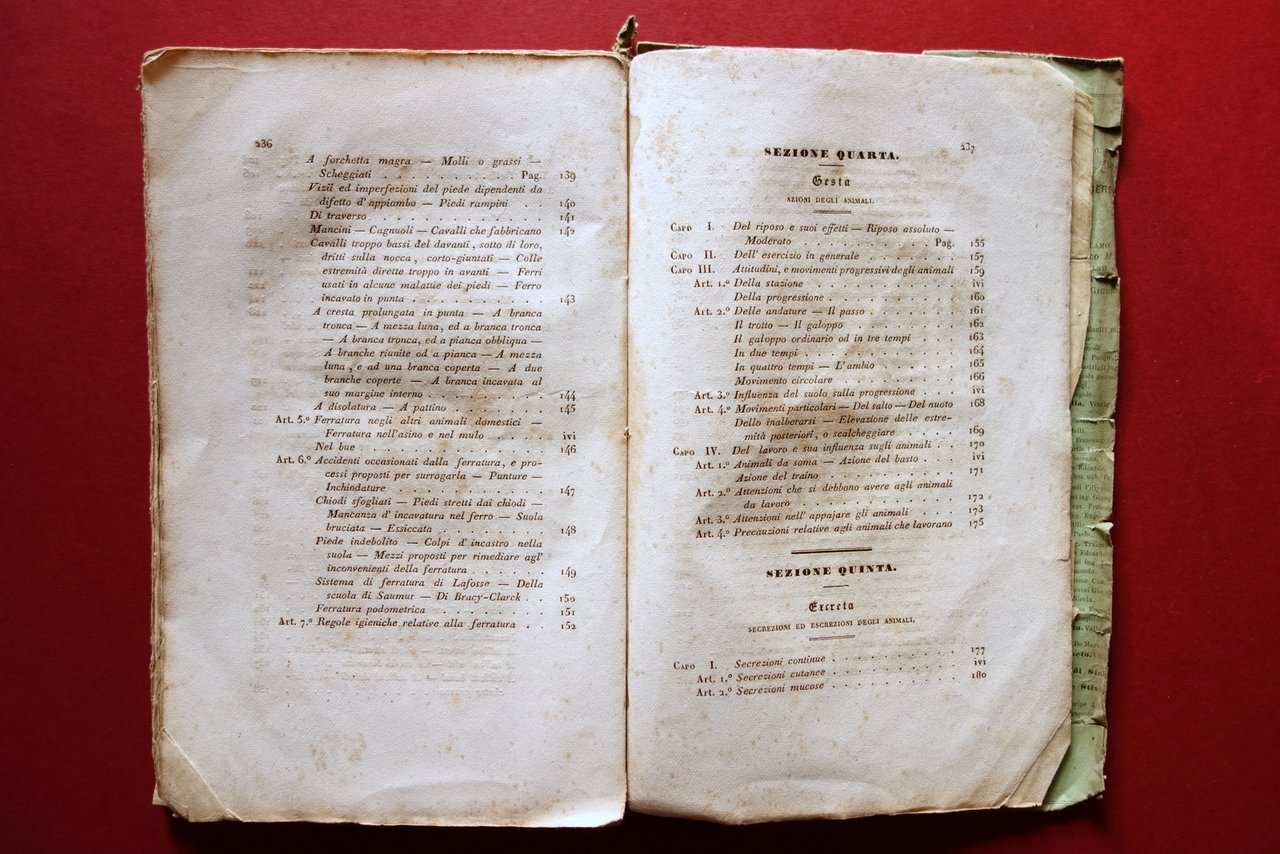 236
A forchetta magra — Molli o grassi —
Scheggiati . . . . . . . . . . . Pag. 139
Vizii ed imperfezioni del piede dipendenti da
difetto d' appiombo — Piedi rampini . . 140
Di traverso . . . . . . . . . . . . . 141
Mancini — Cagnuoli — Cavalli che fabbricano 142
Cavalli troppo bassi del davanti, sotto di loro,
dritti sulla nocca, corto-giuntati — Colle
estremità dirette troppo in avanti — Ferri
usati in alcune malattie dei piedi — Ferro
incavato in punta . . . . . . . . . . 143
A cresta prolungata in punta — A branca
tronca — A mezza luna, ed a branca tronca
— A branca tronca, ed a pianca obbliqua —
A branche riunite od a pianca — A mezza
luna, e ad una branca coperta — A due
branche coperte — A branca incavata al
suo margine interno . . . . . . . . . 144
A disolatura — A pattino . . . . . . . 145
Art. 5.º Ferratura negli altri animali domestici —
Ferratura nell'asino e nel mulo . . . . . ivi
Nel bue . . . . . . . . . . . . . . 146
Art. 6.º Accidenti occasionati dalla ferratura, e pro-
cessi proposti per surrogarla — Punture —
Inchiodature . . . . . . . . . . . . 147
Chiodi sfogliati — Piedi stretti dai chiodi —
Mancanza d' incavatura nel ferro — Suola
bruciata — Essiccata . . . . . . . . . 148
Piede indebolito — Colpi d' incastro nella
suola — Mezzi proposti per rimediare agl'
inconvenienti della ferratura . . . . . . 149
Sistema di ferratura di Lafosse — Della
scuola di Saumur — Di Bracy-Clarck . . 150
Ferratura podometrica . . . . . . . . 151
Art. 7.º Regole igieniche relative alla ferratura . . 152
237
SEZIONE QUARTA.
Gesta
AZIONI DEGLI ANIMALI.
Capo I. Del riposo e suoi effetti — Riposo assoluto —
Moderato . . . . . . . . . . Pag. 155
Capo II. Dell' esercizio in generale . . . . . . . 157
Capo III. Attitudini, e movimenti progressivi degli animali 159
Art. 1.º Della stazione . . . . . . . . . . . ivi
Della progressione . . . . . . . . . . 160
Art. 2.º Delle andature — Il passo . . . . . . . 161
Il trotto — Il galoppo . . . . . . . . 162
Il galoppo ordinario od in tre tempi . . . . 163
In due tempi . . . . . . . . . . . . 164
In quattro tempi — L' ambio . . . . . . 165
Movimento circolare . . . . . . . . . 166
Art. 3.º Influenza del suolo sulla progressione . . . ivi
Art. 4.º Movimenti particolari — Del salto — Del nuoto 168
Dello inalberarsi — Elevazione delle estre-
mità posteriori, o scalcheggiare . . . . . 169
Capo IV. Del lavoro e sua influenza sugli animali . . 170
Art. 1.º Animali da soma — Azione del basto . . . ivi
Azione del traino . . . . . . . . . . 171
Art. 2.º Attenzioni che si debbono avere agli animali
da lavoro . . . . . . . . . . . . . 172
Art. 3.º Attenzioni nell' appajare gli animali . . . 173
Art. 4.º Precauzioni relative agli animali che lavorano 175
SEZIONE QUINTA.
Excreta
SECREZIONI ED ESCREZIONI DEGLI ANIMALI.
Capo I. Secrezioni continue . . . . . . . . . . 177
Art. 1.º Secrezioni cutanee . . . . . . . . . . ivi
Art. 2.º Secrezioni mucose . . . . . . . . . . 180